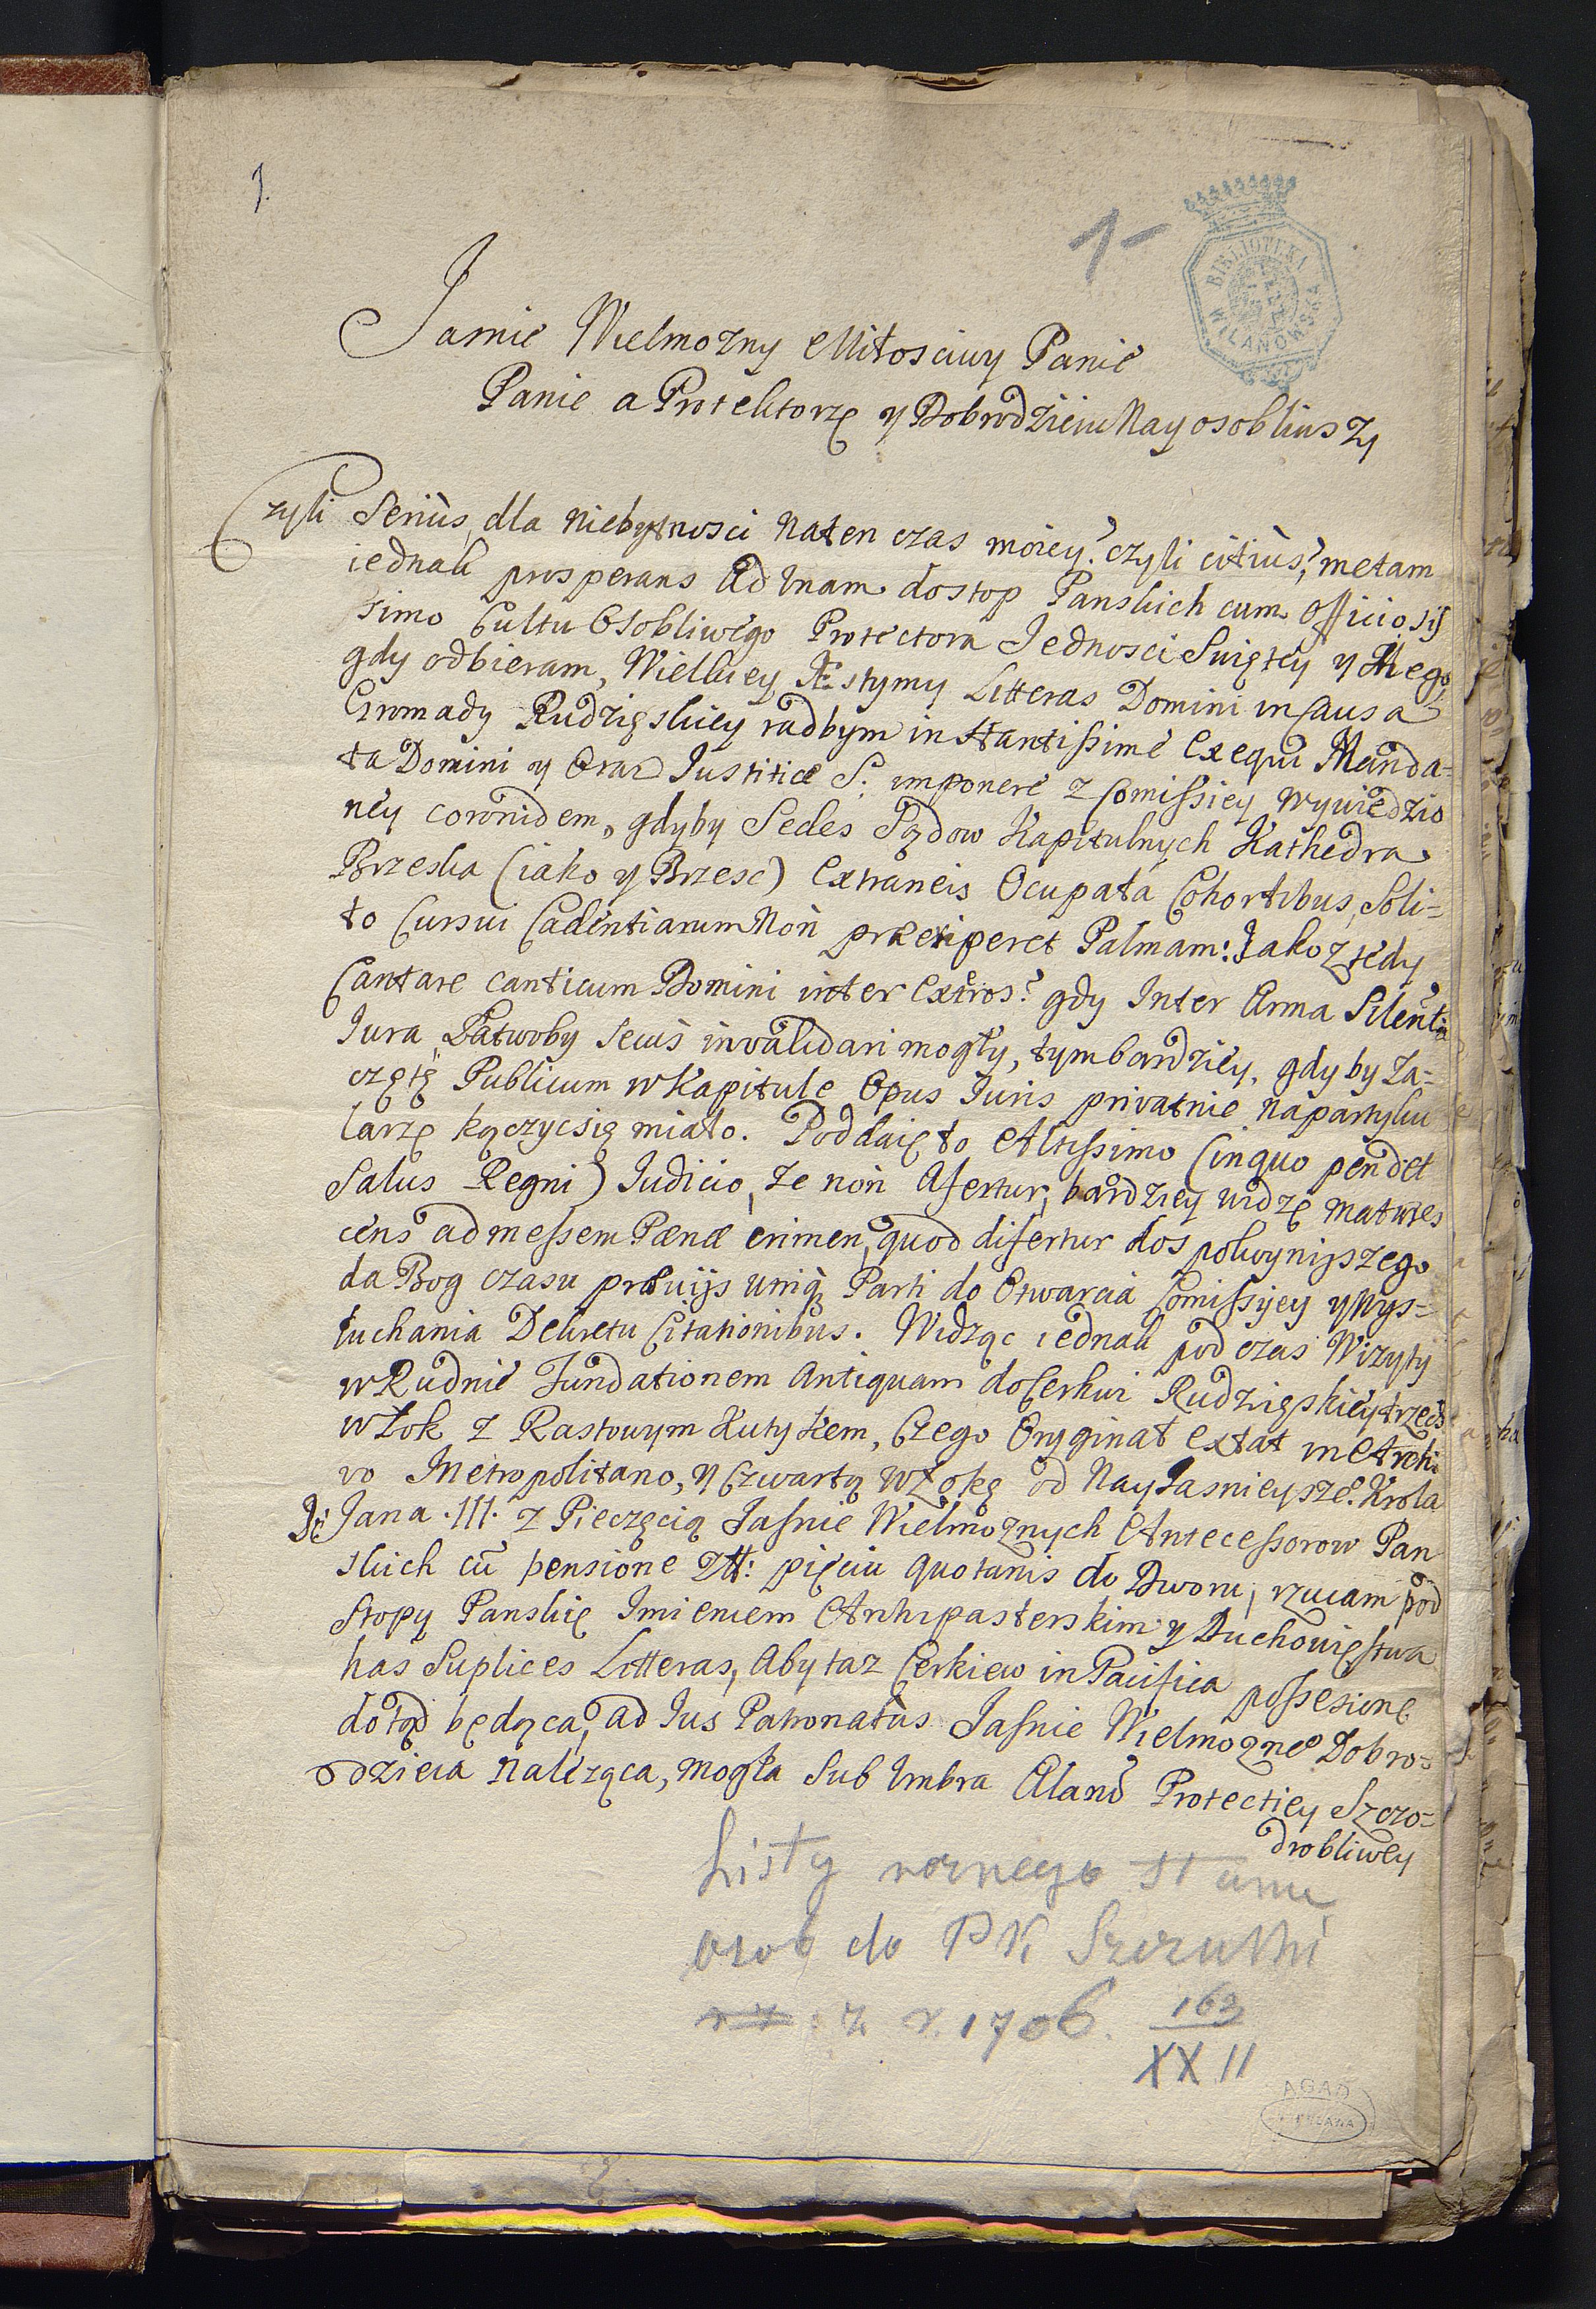 1.
1-
BIBLIOTEKA WILANOWSKA
Jasnie Wielmozny Miłosciwy Panie
Panie a Protektorze y Dobrodzieiu Nayosobliwszy
Czyli Serius, dla niebytnosci naten czas moiey? czyli citius? metam
iednak prosperans ad Unam dostop Panskich cum officiosis
simo Cultu Osobliwego Protectora Jednosci Swiętey y Mego
gdy odbieram, Wielkiey Æstymy Litteras Domini in Causa
Gromady Rudzięskiey radbym instantissime Exequi Manda=
ta Domini y Oraz Justitiæ S. imponere z Comissiey wywiedzio
ney coronidem, gdyby Sedes Sądow Kapitulnych Kathedra
Brzeska (iako y Brzesc) Extraneis Ocupata Cohortibus, Soli=
to Cursui Cadentiarum Non præriperet Palmam: Jakoz tedy
Cantare canticum Domini inter Exteros? gdy Inter Arma Silentia
Jura, Łatwoby Secus invalidari mogły, tymbardziey, gdyby Za=
częte Publicum w Kapitule Opus Juris privatnie na partyku
larze kączycsię miało. Poddaię to Altissimo (in quo pendet
Salus Regni) Judicio, ze non Afertur, bardziey widzę matures
cens ad messem Pænæ crimen, quod difertur do spokoynijszego
da Bog czasu præviis uniq Parti do Otwarcia Comissyey y wys=
łuchania Dekretu Citationibus. Widząc iednak pod czas Wizyty
w Rudnie Fundationem Antiquam do Cerkwi Rudzięskiey trzech
włok z Rastowym Kutykem, Czego Oryginał extat in Archi
vo Metropolitano, y Czwartą Włokę od Nayiasnieysze° Krola
Jana .III. z Pieczęcią Jasnie Wielmoznych Antecessorow Pan
skich cũ pensione Złł: pięciu quotanis do Dworu, rzucam pod
stopy Panskie Imieniem Arhipasterskim y Duchowięstwa
has Suplices Litteras, Aby taz Cerkiew in Pacifica possesione
dotąd będąca, ad Jus Patronatus Jasnie Wielmozne° Dobro=
dzieia Naleząca, mogła Sub Umbra Alarũ Protectiey Szczo=
drobliwey
Listy roznego stanu
osob do P K Szczuki
z r. 1706. 163
XXII
AGAD